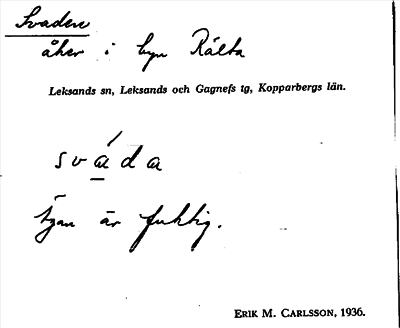 Svaden
åker i byn Rälta
Leksands sn, Leksands och Gagnefs tg, Kopparbergs län.
sváda
är fuktig.
ERIK M. CARLSSON, 1936.